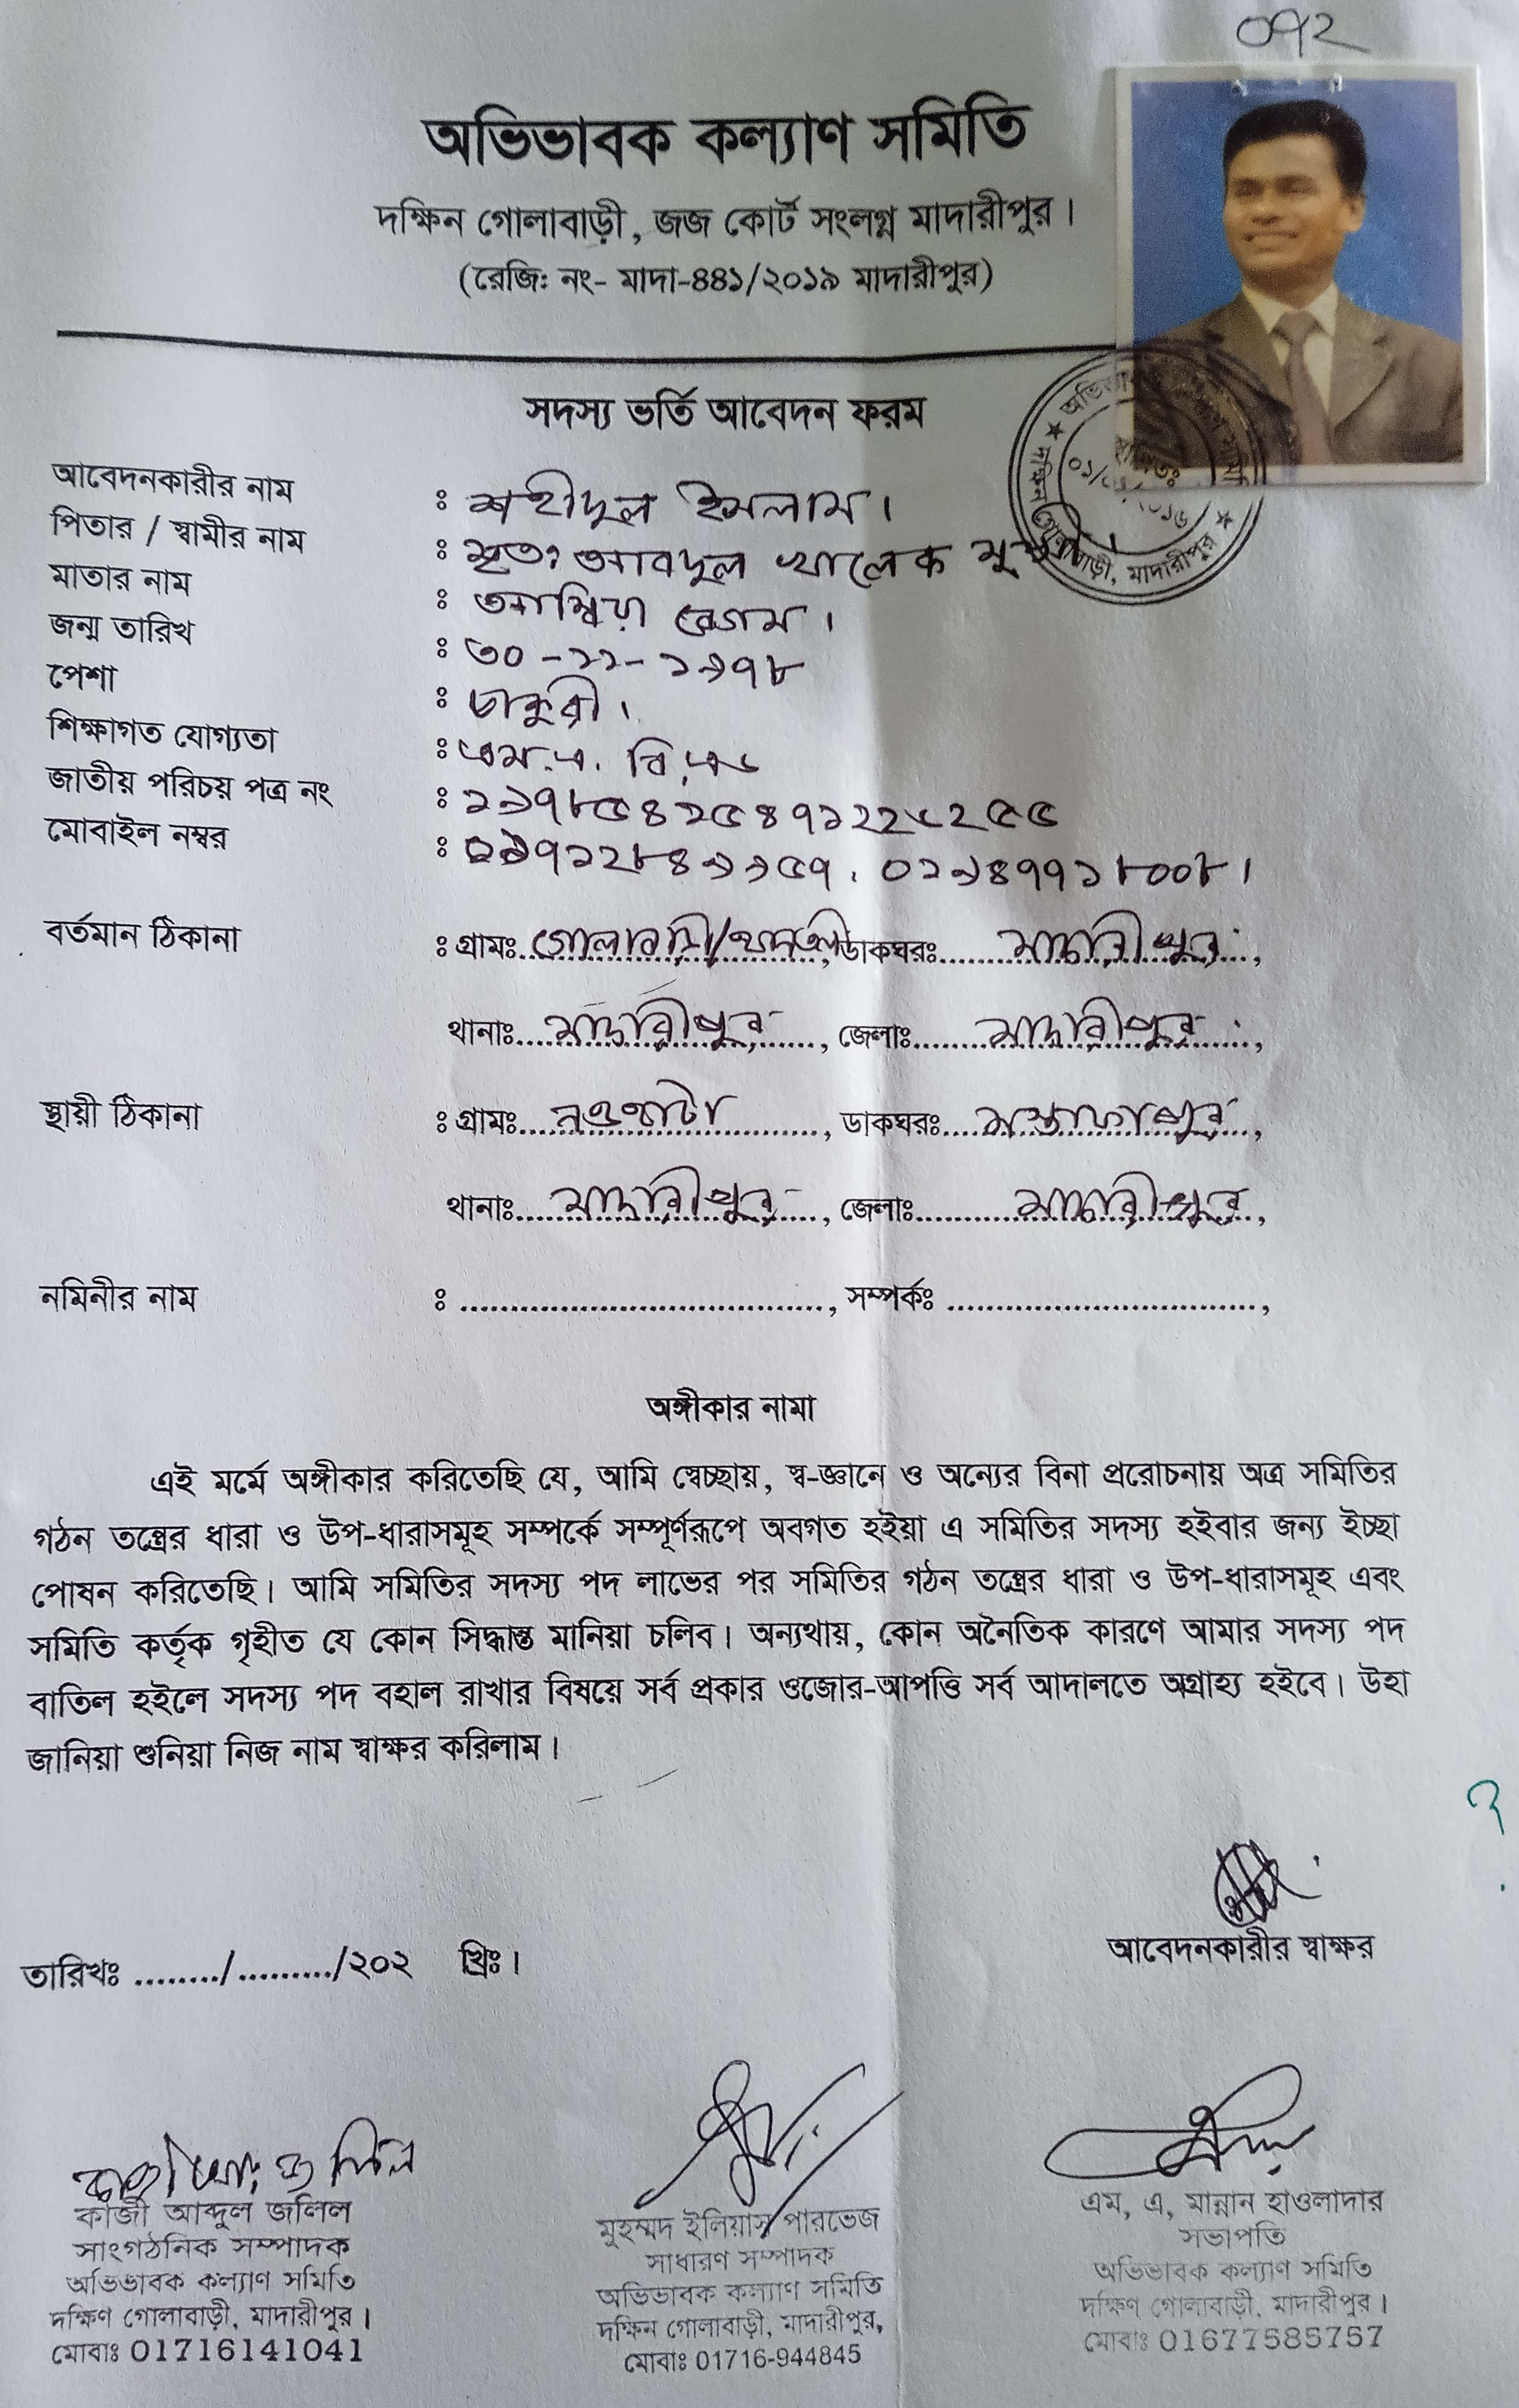 ০৭২
অভিভাবক কল্যাণ সমিতি
দক্ষিন গোলাবাড়ী, জজ কোর্ট সংলগ্ন মাদারীপুর।
(রেজি: নং- মাদা-৪৪১/২০১৯ মাদারীপুর)
সদস্য ভর্তি আবেদন ফরম
আবেদনকারীর নাম : শহীদুল ইসলাম।
পিতার / স্বামীর নাম : মৃতঃ আবদুল খালেক মুন্সী।
মাতার নাম : আম্বিয়া বেগম।
জন্ম তারিখ : ৩০-১১-১৯৭৮
পেশা : চাকুরী।
শিক্ষাগত যোগ্যতা : এম.এ. বি.এড
জাতীয় পরিচয় পত্র নং :
মোবাইল নম্বর : ০১৯৪৭৭১৮০০৮।
বর্তমান ঠিকানা : গ্রামঃ গোলাবাড়ী/ ডাকঘরঃ মাদারীপুর,
থানাঃ মাদারীপুর, জেলাঃ মাদারীপুর,
স্থায়ী ঠিকানা : গ্রামঃ , ডাকঘরঃ মস্তফাপুর,
থানাঃ মাদারীপুর, জেলাঃ মাদারীপুর,
নমিনীর নাম : ...................................., সম্পর্কঃ ..............................,
অঙ্গীকার নামা
এই মর্মে অঙ্গীকার করিতেছি যে, আমি স্বেচ্ছায়, স্ব-জ্ঞানে ও অন্যের বিনা প্ররোচনায় অত্র সমিতির
গঠন তন্ত্রের ধারা ও উপ-ধারাসমূহ সম্পর্কে সম্পূর্ণরূপে অবগত হইয়া এ সমিতির সদস্য হইবার জন্য ইচ্ছা
পোষন করিতেছি। আমি সমিতির সদস্য পদ লাভের পর সমিতির গঠন তন্ত্রের ধারা ও উপ-ধারাসমূহ এবং
সমিতি কর্তৃক গৃহীত যে কোন সিদ্ধান্ত মানিয়া চলিব। অন্যথায়, কোন অনৈতিক কারণে আমার সদস্য পদ
বাতিল হইলে সদস্য পদ বহাল রাখার বিষয়ে সর্ব প্রকার ওজোর-আপত্তি সর্ব আদালতে অগ্রাহ্য হইবে। উহা
জানিয়া শুনিয়া নিজ নাম স্বাক্ষর করিলাম।
আবেদনকারীর স্বাক্ষর
তারিখঃ ......../........./২০২ খ্রিঃ।
কাজী আব্দুল জলিল
সাংগঠনিক সম্পাদক
অভিভাবক কল্যাণ সমিতি
দক্ষিণ গোলাবাড়ী, মাদারীপুর।
মোবাঃ 01716141041
মুহম্মদ ইলিয়াস পারভেজ
সাধারণ সম্পাদক
অভিভাবক কল্যাণ সমিতি
দক্ষিন গোলাবাড়ী, মাদারীপুর,
মোবাঃ 01716-944845
এম, এ, মান্নান হাওলাদার
সভাপতি
অভিভাবক কল্যাণ সমিতি
দক্ষিণ গোলাবাড়ী, মাদারীপুর।
মোবাঃ 01677585757